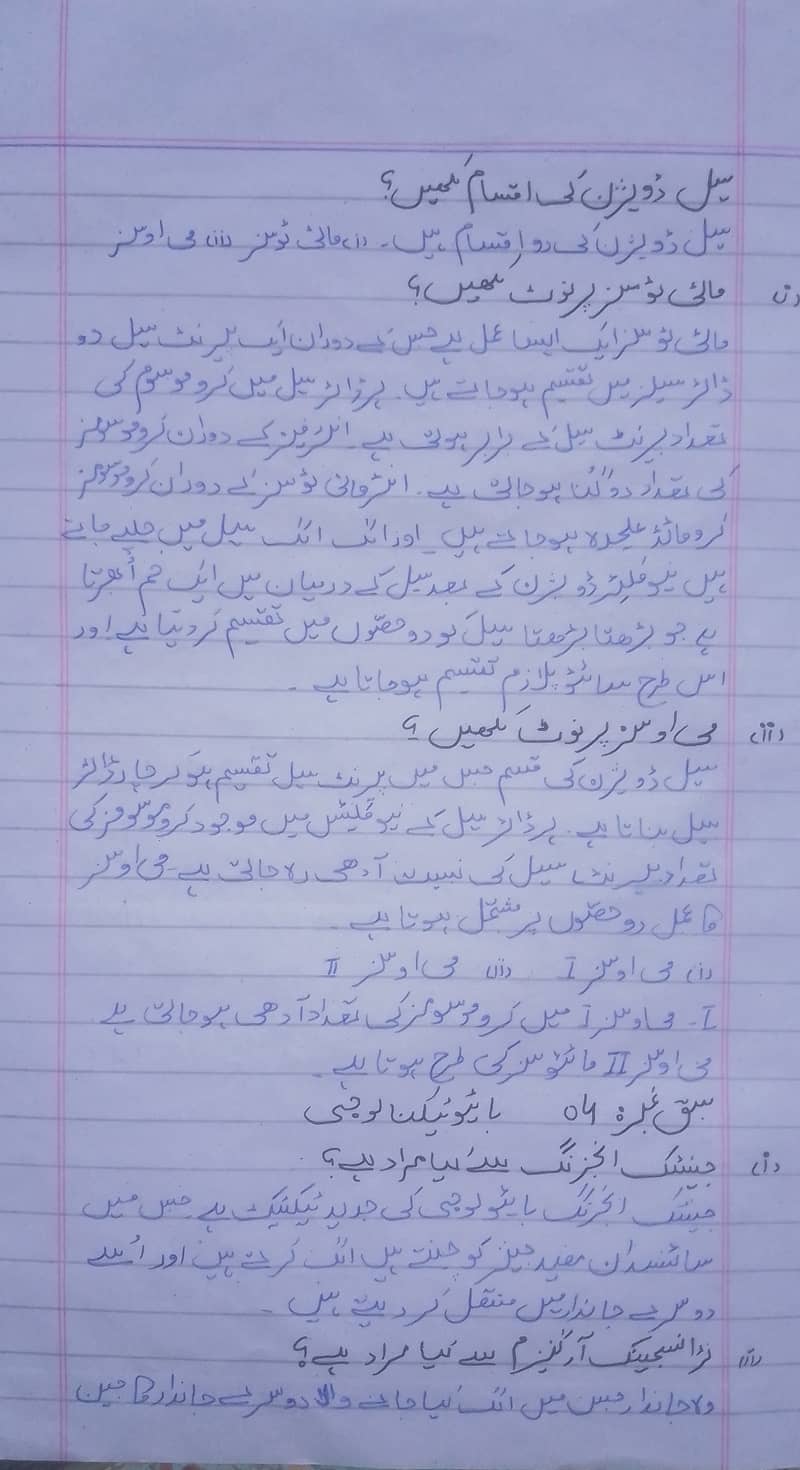 سیل ڈویژن کی اقسام لکھیں؟
سیل ڈویژن کی دو اقسام ہیں۔ (i) مائی ٹوسز (ii) می اوسز
(i) مائی ٹوسز پر نوٹ لکھیں؟
مائی ٹوسز ایک ایسا عمل ہے جس کے دوران ایک پیرنٹ سیل دو
ڈاٹر سیلز میں تقسیم ہو جاتے ہیں۔ ہر ڈاٹر سیل میں کروموسوم کی
تعداد پیرنٹ سیل کے برابر ہوتی ہے۔ انٹرفیز کے دوران کروموسومز
کی تعداد دوگنا ہو جاتی ہے۔ کے دوران کروموسومز
کروماٹڈ علیحدہ ہو جاتے ہیں۔ اور الگ الگ سیل میں چلے جاتے
ہیں نیوکلیئر ڈویژن کے بعد سیل کے درمیان میں ایک خم اُبھرتا
ہے جو بڑھتا بڑھتا سیل کو دو حصوں میں تقسیم کر دیتا ہے اور
اس طرح سائٹوپلازم تقسیم ہو جاتا ہے۔
(ii) می اوسز پر نوٹ لکھیں؟
سیل ڈویژن کی قسم جس میں پیرنٹ سیل تقسیم ہو کر چار ڈاٹر
سیل بناتا ہے۔ ہر ڈاٹر سیل کے نیوکلیئس میں موجود کروموسومز کی
تعداد پیرنٹ سیل کی نسبت آدھی رہ جاتی ہے می اوسز
کا عمل دو حصوں پر مشتمل ہوتا ہے۔
(i) می اوسز I (ii) می اوسز II
I۔ می اوسز I میں کروموسومز کی تعداد آدھی ہو جاتی ہے
می اوسز II مائٹوسز کی طرح ہوتا ہے۔
سبق نمبر: 04 بائیوٹیکنالوجی
(i) جینیٹک انجنرنگ سے کیا مراد ہے؟
جینٹک انجنرنگ بائیولوجی کی جدید ٹیکنیک ہے جس میں
سائنسدان مفید جینز کو چنتے ہیں الگ کرتے ہیں اور اُسے
دوسرے جاندار میں منتقل کر دیتے ہیں۔
(ii) ٹرانسجینک آرگنزم سے کیا مراد ہے؟
وہ جاندار جس میں الگ کیا جانے والا دوسرے جاندار کا جین